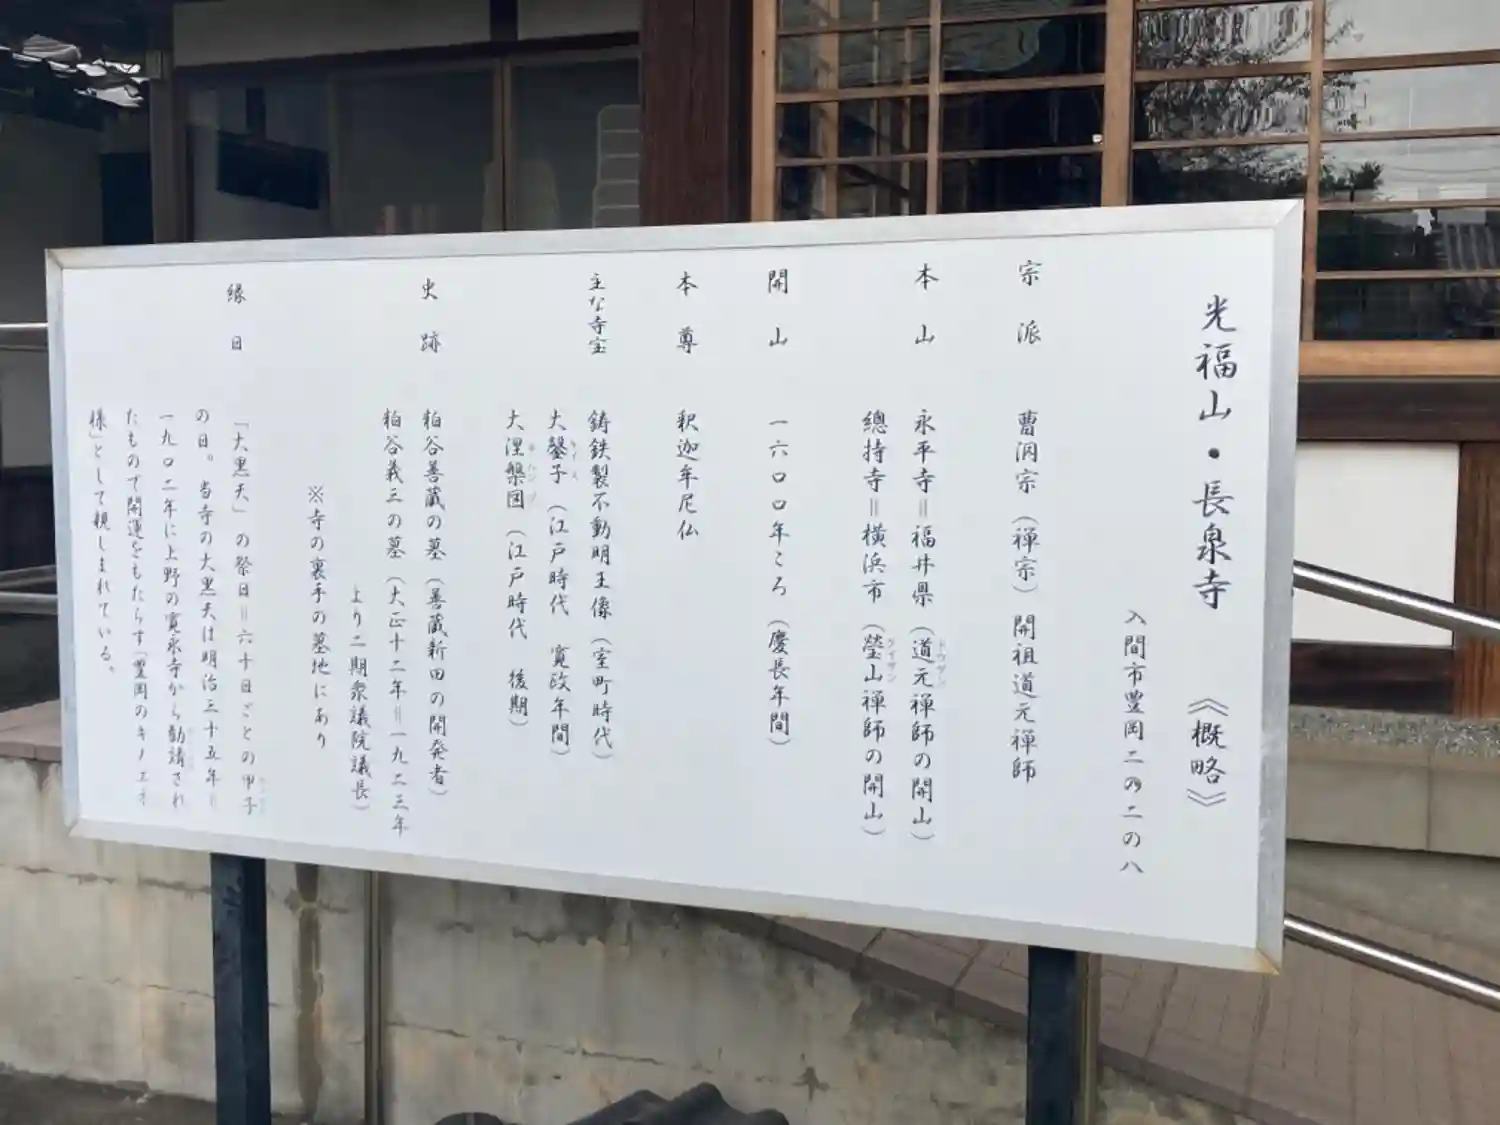 光福山・長泉寺 《概略》
入間市豊岡二の二の八
宗派 曹洞宗(禅宗)開祖道元禅師
本山 永平寺=福井県(道元禅師の開山)
總持寺=横浜市(瑩山禅師の開山)
開山 一六〇〇年ころ(慶長年間)
本尊 釈迦牟尼仏
主な寺宝 鋳鉄製不動明王像(室町時代)
大鏧子(江戸時代 寛政年間)
大涅槃図(江戸時代 後期)
史跡 粕谷善蔵の墓(善蔵新田の開発者)
粕谷義三の墓(大正十二年=一九二三年
より二期衆議院議長)
※寺の裏手の墓地にあり
縁日 「大黒天」の祭日=六十日ごとの甲子
の日。当寺の大黒天は明治三十五年=
一九〇二年に上野の寛永寺から勧請され
たもので開運をもたらす「豊岡のキノエネ
様」として親しまれている。